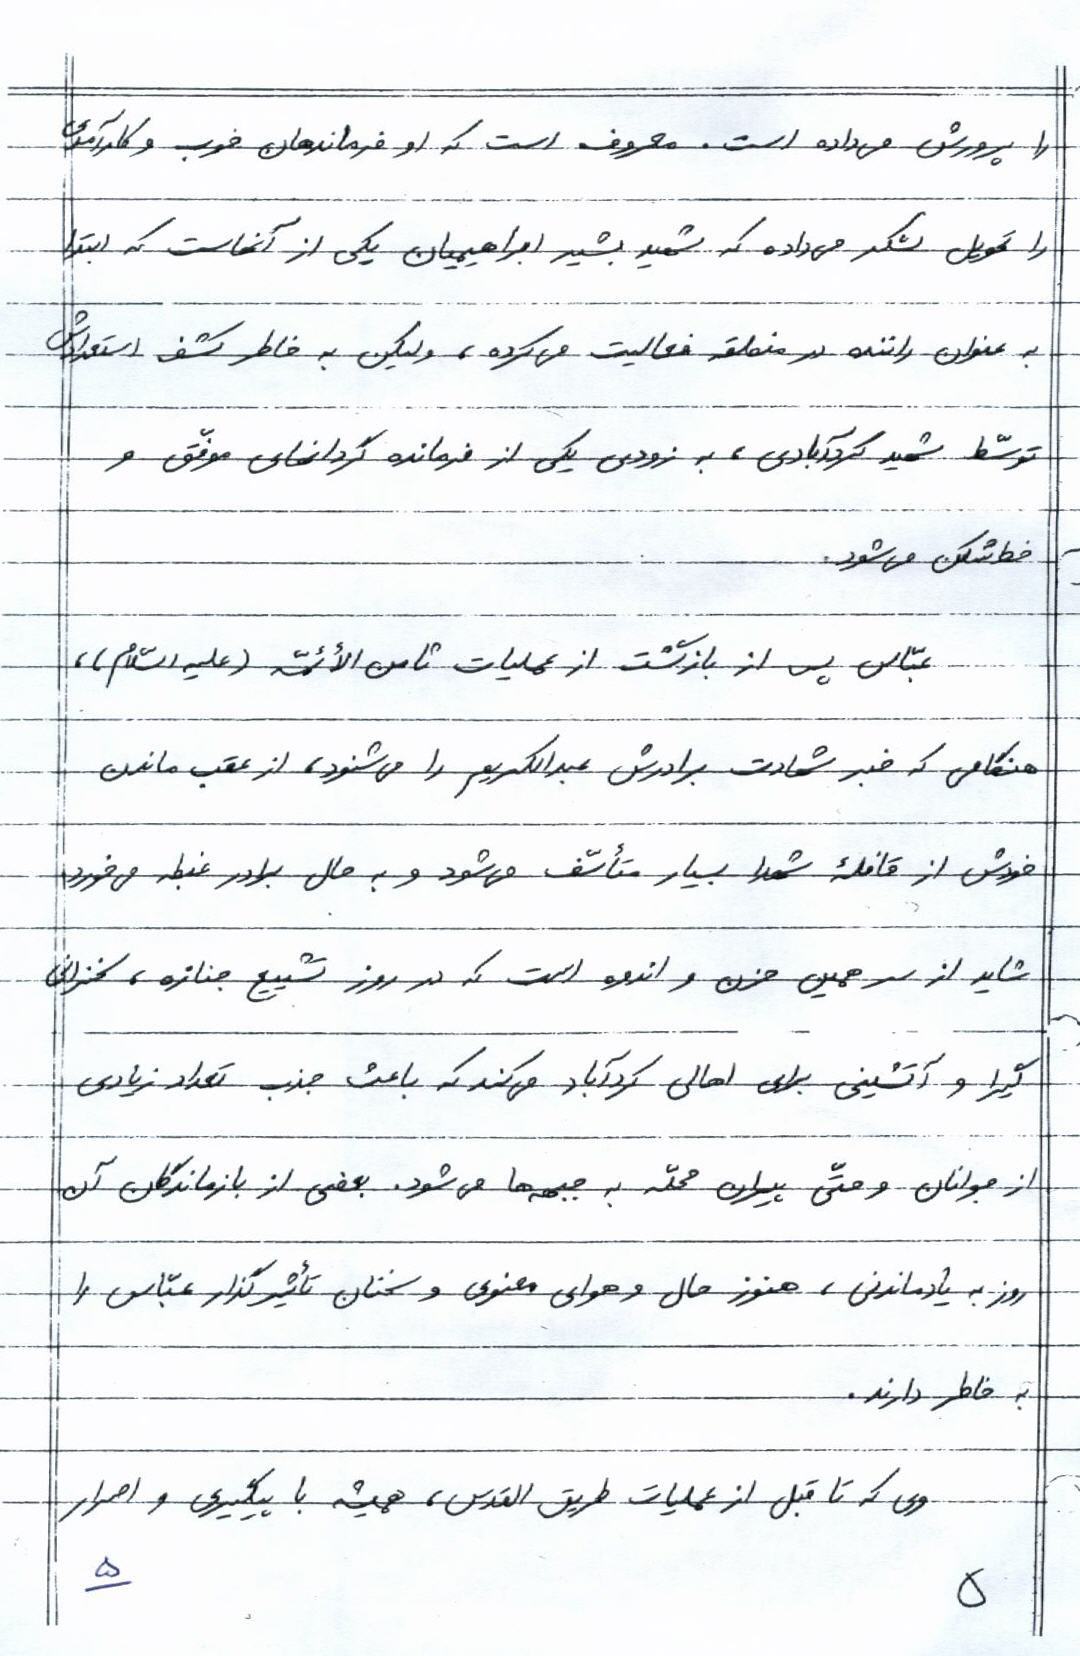 را پرورش می‌داده است. معروف است که او فرماندهان خوب و کارآمدی
را تحویل لشکر می‌داده که شهید بشیر ابراهیمیان یکی از آنهاست که ابتدا
به عنوان راننده در منطقه فعالیت می‌کرده، ولیکن به خاطر کشف استعدادش
توسّط شهید کردآبادی، به زودی یکی از فرمانده گردانهای موفّق و
خط‌شکن می‌شود.
عبّاس پس از بازگشت از عملیات ثامن الأئمّه (علیه السّلام)،
هنگامی که خبر شهادت برادرش عبدالکریم را می‌شنود، از عقب ماندن
خودش از قافلهٔ شهدا بسیار متأسّف می‌شود و به حال برادر غبطه می‌خورد.
شاید از سر همین حزن و اندوه است که در روز تشییع جنازه، سخنرانی
گیرا و آتشینی برای اهالی کردآباد می‌کند که باعث جذب تعداد زیادی
از جوانان و حتّی پیران محلّه به جبهه‌ها می‌شود. بعضی از بازماندگان آن
روز به یادماندنی، هنوز حال و هوای معنوی و سخنان تأثیرگذار عبّاس را
به خاطر دارند.
وی که تا قبل از عملیات طریق القدس، همیشه با پیگیری و اصرار
۵
۵